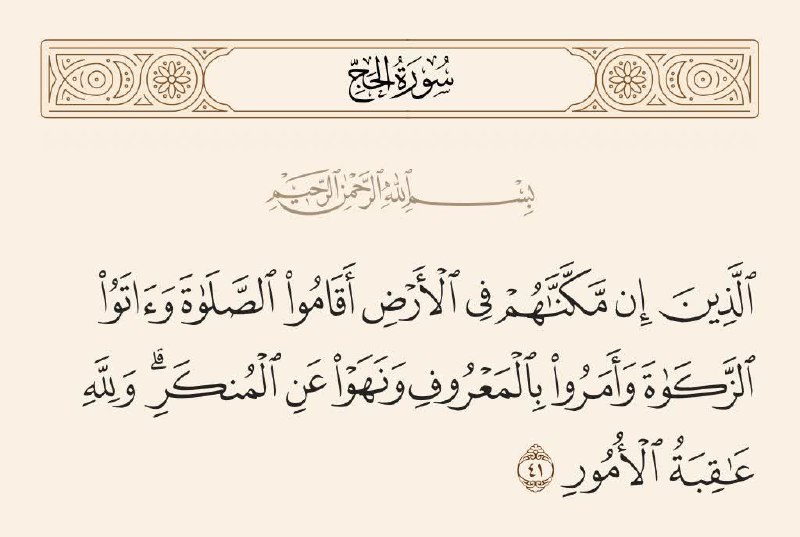 سُورَةُ الحَجِّ
بِسۡمِ ٱللَّهِ ٱلرَّحۡمَٰنِ ٱلرَّحِيمِ
ٱلَّذِينَ إِن مَّكَّنَّٰهُمۡ فِي ٱلۡأَرۡضِ أَقَامُواْ ٱلصَّلَوٰةَ وَءَاتَوُاْ
ٱلزَّكَوٰةَ وَأَمَرُواْ بِٱلۡمَعۡرُوفِ وَنَهَوۡاْ عَنِ ٱلۡمُنكَرِۗ وَلِلَّهِ
عَٰقِبَةُ ٱلۡأُمُورِ ٤١